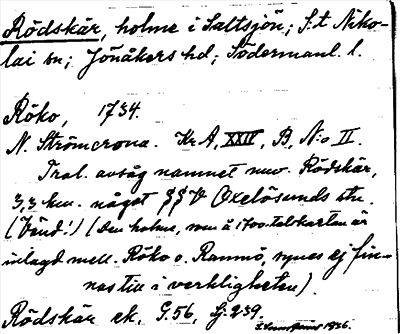 Rödskär, holme i Saltsjön; S:t Niko-
lai sn; Jönåkers hd; Södermanl. l.
Röko, 1734.
N. Strömcrona. Kr A, XXIV, B, N:o II.
Trol. avsåg namnet nuv. Rödskär,
3,3 km. något SSV Oxelösunds stn.
(Vänd!) (Den holme, som å 1700-talskartan är
inlagd mell. Röko o. Rammö, synes ej fin-
nas till i verkligheten).
Rödskär ek. S.56, Lj. 239.
1936.